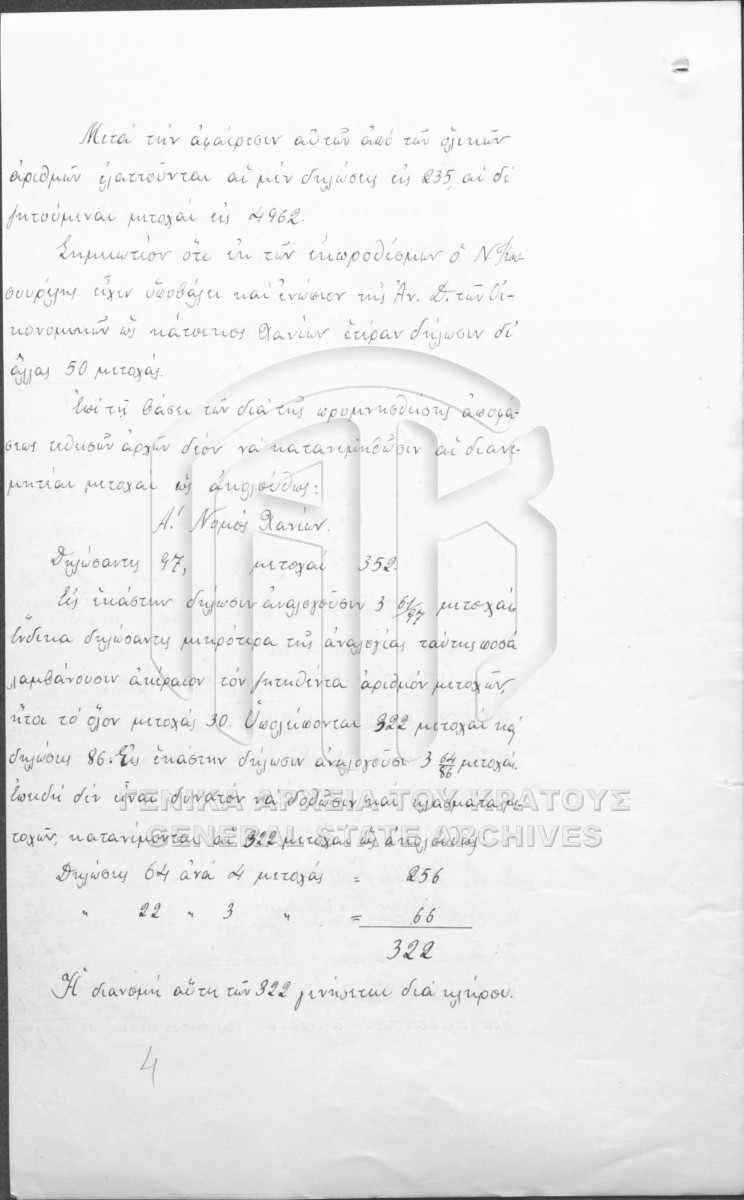 Μετά τήν ἀφαίρεσιν αὐτῶν ἀπό τῶν ὁλικῶν
ἀριθμῶν ἐλαττοῦνται αἱ μέν δηλώσεις εἰς 235, αἱ δέ
ζητούμεναι μετοχαί εἰς 4962.
Σημειωτέον ὅτι ἐκ τῶν ἐκπροθέσμων ὁ Ν.
εἶχεν ὑποβάλει καί ἐνώπιον τῆς Ἀν. Δ. τῶν Οἰ-
κονομικῶν ὡς κάτοικος Χανίων ἑτέραν δήλωσιν δι'
ἄλλας 50 μετοχάς.
Ἐπί τῇ βάσει τῶν διά τῆς προμνησθείσης ἀποφά-
σεως τεθεισῶν ἀρχῶν δέον νά κατανεμηθῶσιν αἱ διανε-
μητέαι μετοχαί ὡς ἀκολούθως:
Α.' Νομός Χανίων.
Δηλώσαντες 97, μετοχαί 352.
Εἰς ἑκάστην δήλωσιν ἀναλογοῦσιν 3 61/97 μετοχαί
Ἕνδεκα δηλώσαντες μικρότερα τῆς ἀναλογίας ταύτης ποσά
λαμβάνουσιν ἀκέραιον τόν ζητηθέντα ἀριθμόν μετοχῶν,
ἤτοι τό ὅλον μετοχάς 30. Ὑπολείπονται 322 μετοχαί καί
δηλώσεις 86. Εἰς ἑκάστην δήλωσιν ἀναλογοῦσι 3 64/86 μετοχαί.
Ἐπειδή δέν εἶναι δυνατόν νά δοθῶσιν καί κλάσματα με-
τοχῶν, κατανέμονται αἱ 322 μετοχαί ὡς ἀκολούθως:
Δηλώσεις 64 ἀνά 4 μετοχάς = 256
" 22 " 3 " = 66
322
Ἡ διανομή αὕτη τῶν 322 γενήσεται διά κλήρου.
4
ΓΕΝΙΚΑ ΑΡΧΕΙΑ ΤΟΥ ΚΡΑΤΟΥΣ
GENERAL STATE ARCHIVES